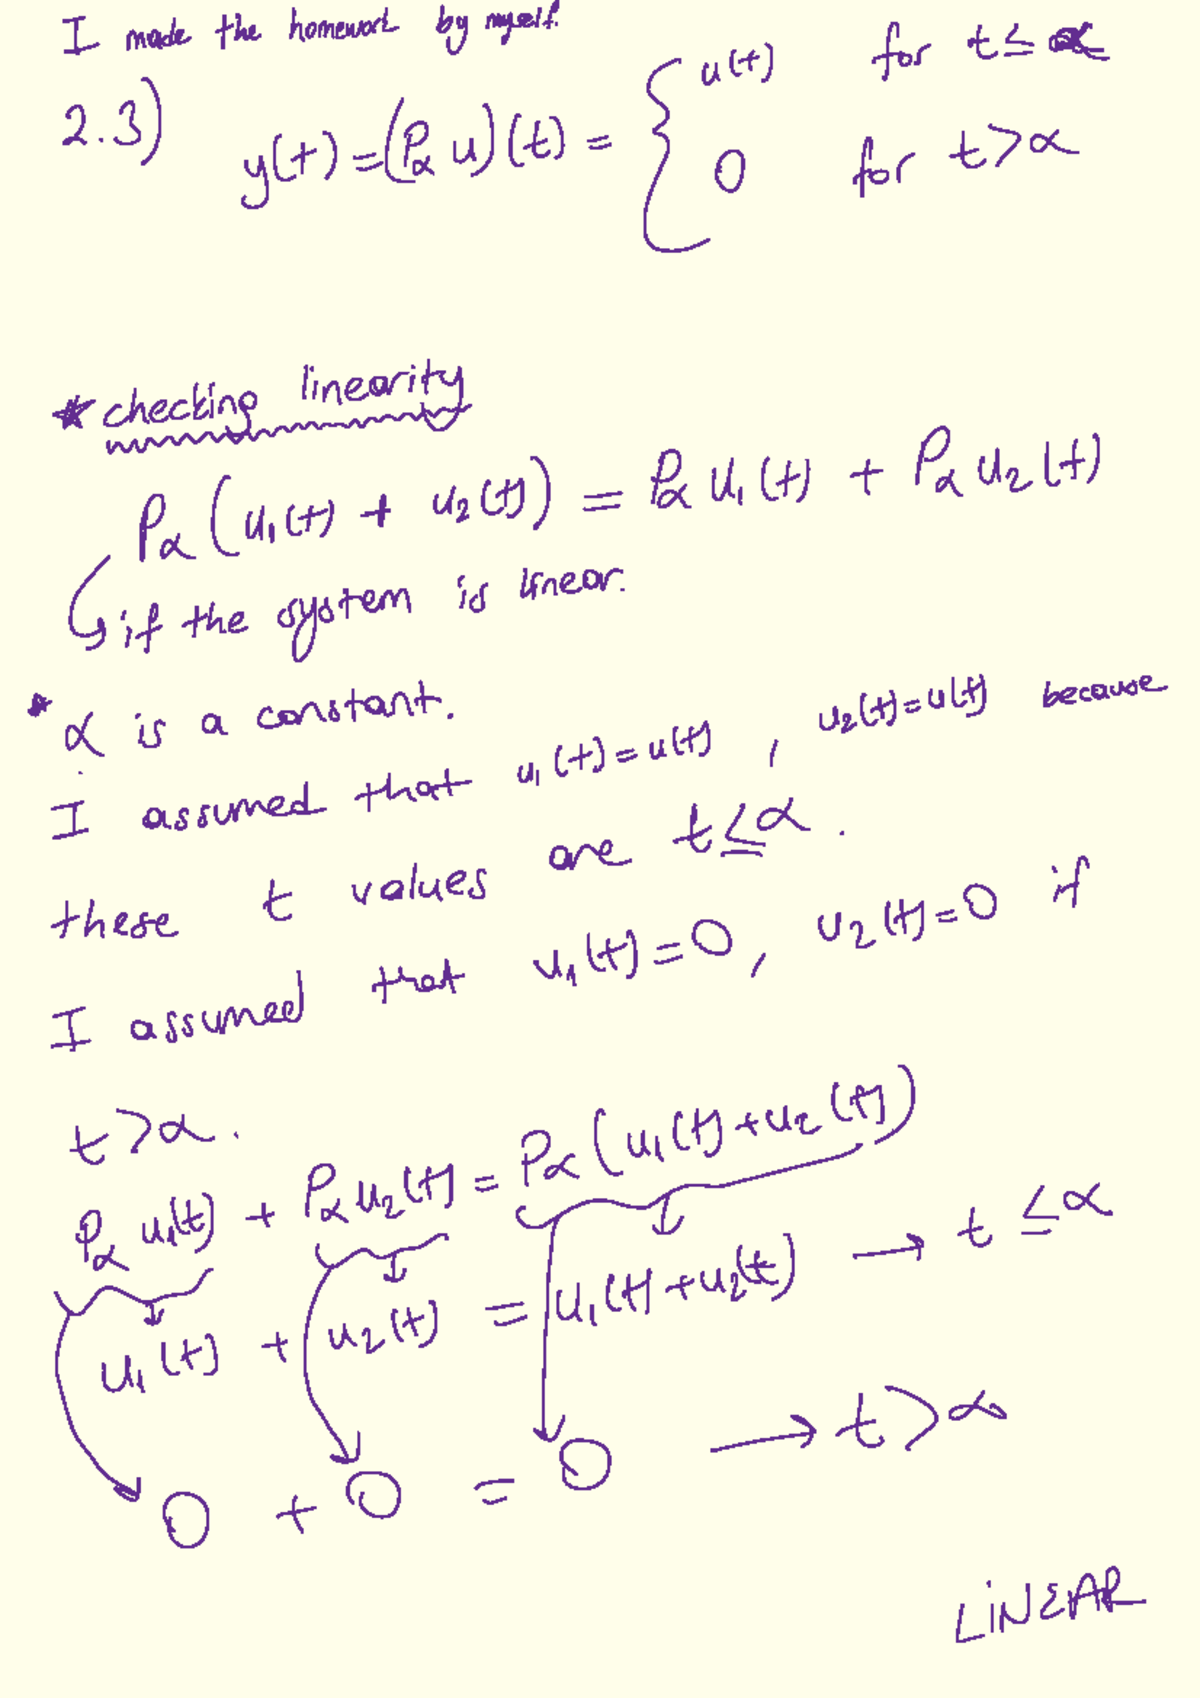 I made the homework by myself.
2.3) y(t) = (Pα u)(t) = { u(t) for t ≤ α
0 for t > α
* checking linearity
Pα (u₁(t) + u₂(t)) = Pα u₁(t) + Pα u₂(t)
↳ if the system is linear.
* α is a constant.
I assumed that u₁(t) = u(t) , u₂(t) = u(t) because
these t values are t ≤ α .
I assumed that u₁(t) = 0 , u₂(t) = 0 if
t > α .
Pα u₁(t) + Pα u₂(t) = Pα (u₁(t) + u₂(t))
u₁(t) + u₂(t) = u₁(t) + u₂(t) → t ≤ α
0 + 0 = 0 → t > α
LİNEAR